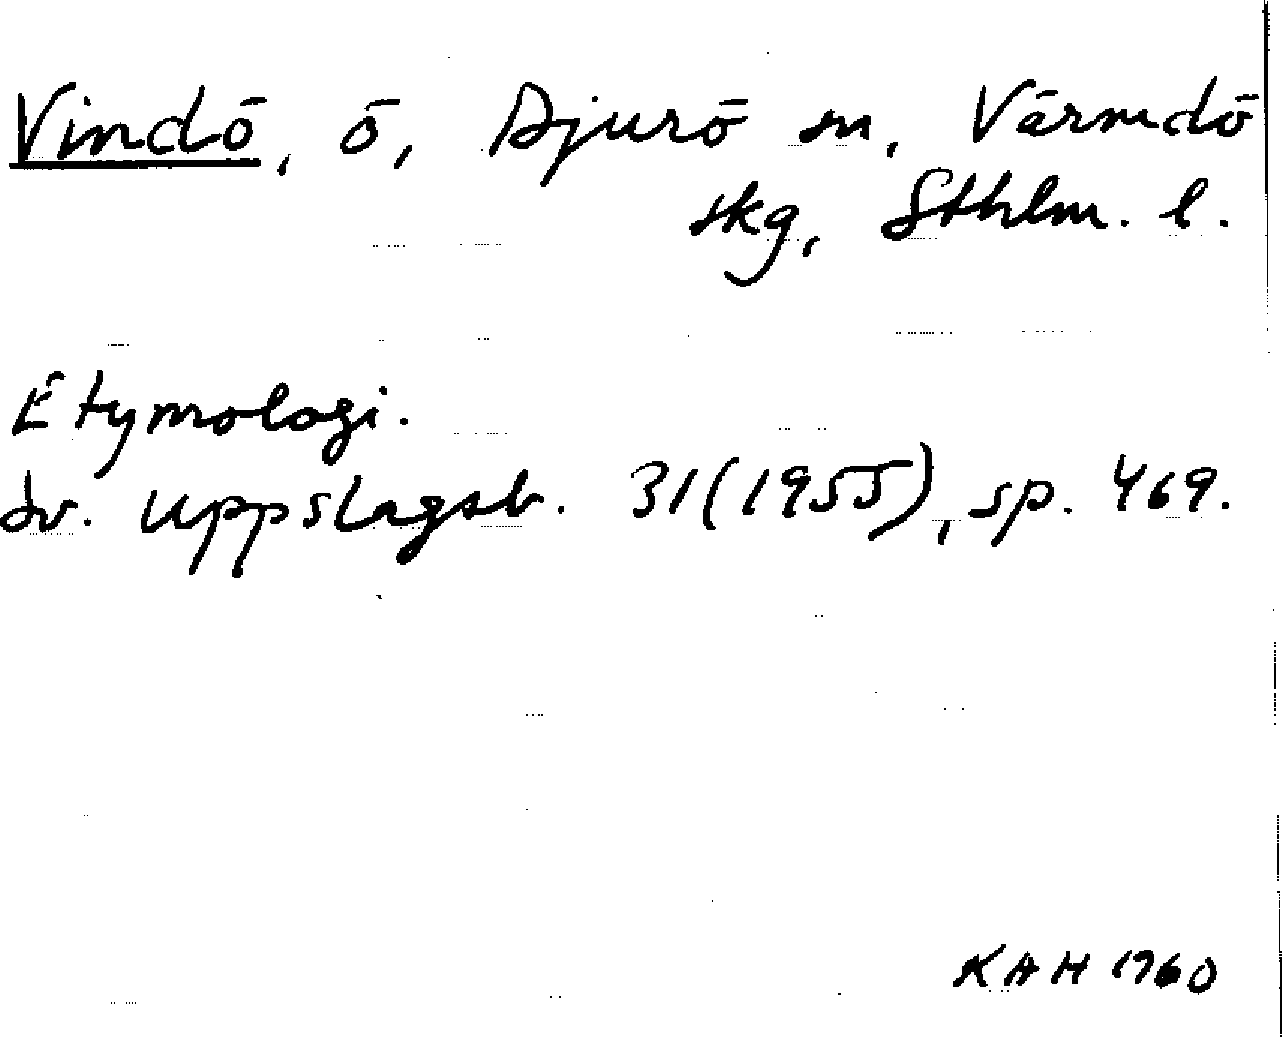 Vindö, ö, Djurö sn, Värmdö
skg, Sthlm. l.
Etymologi.
Sv. uppslagsb. 31(1955), sp. 469.
KAH 1960